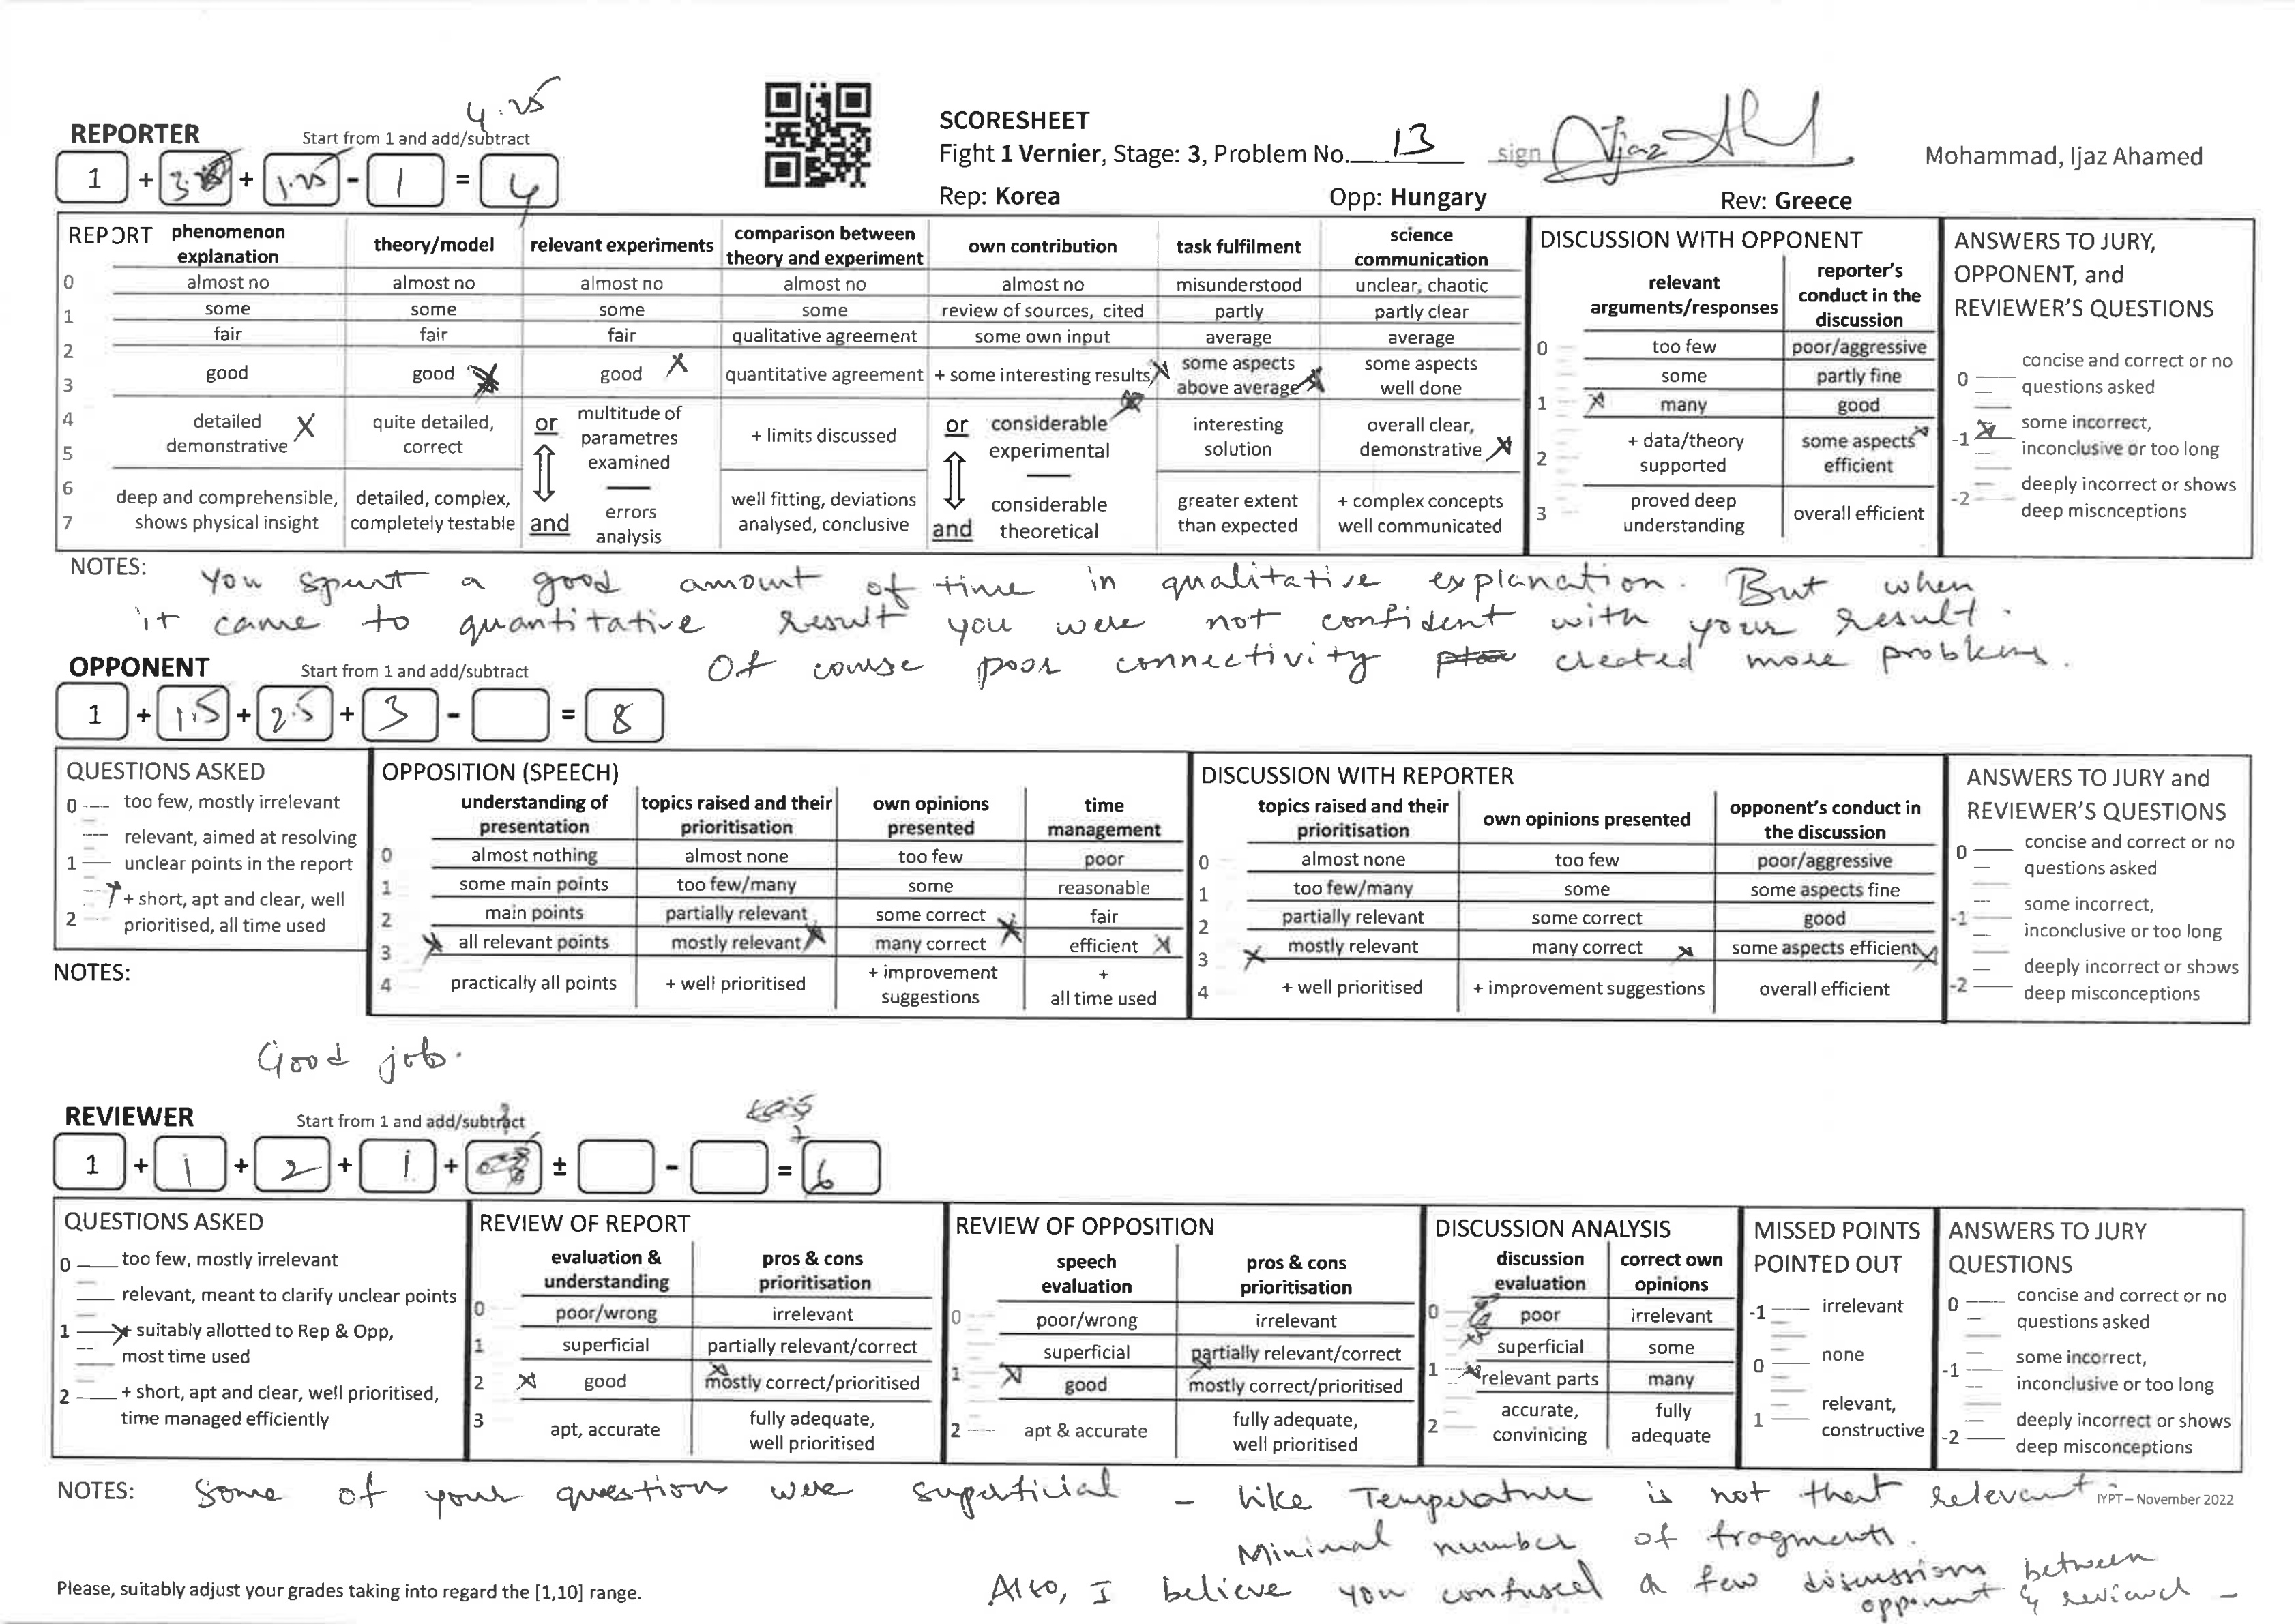 4.25
REPORTER Start from 1 and add/subtract
1 + + 1.25 - 1 = 4
SCORESHEET
Fight 1 Vernier, Stage: 3, Problem No. 13 sign Ijaz Mohammad, Ijaz Ahamed
Rep: Korea Opp: Hungary Rev: Greece
REPORT
phenomenon explanation theory/model relevant experiments comparison between theory and experiment own contribution task fulfilment science communication
0 almost no almost no almost no almost no almost no misunderstood unclear, chaotic
1 some some some some review of sources, cited partly partly clear
2 fair fair fair qualitative agreement some own input average average
3 good good good quantitative agreement + some interesting results some aspects above average some aspects well done
4 5 detailed demonstrative quite detailed, correct or multitude of parametres examined + limits discussed or considerable experimental interesting solution overall clear, demonstrative
6 7 deep and comprehensible, shows physical insight detailed, complex, completely testable and errors analysis well fitting, deviations analysed, conclusive and considerable theoretical greater extent than expected + complex concepts well communicated
DISCUSSION WITH OPPONENT
relevant arguments/responses reporter's conduct in the discussion
0 too few poor/aggressive
some partly fine
1 many good
2 + data/theory supported some aspects efficient
3 proved deep understanding overall efficient
ANSWERS TO JURY,
OPPONENT, and
REVIEWER'S QUESTIONS
0 concise and correct or no questions asked
-1 some incorrect, inconclusive or too long
-2 deeply incorrect or shows deep miscnceptions
NOTES: You spent a good amount of time in qualitative explanation. But when
it came to quantitative result you were not confident with your result.
Of course poor connectivity created more problems.
OPPONENT Start from 1 and add/subtract
1 + 1.5 + 2.5 + 3 - = 8
QUESTIONS ASKED
0 too few, mostly irrelevant
relevant, aimed at resolving
1 unclear points in the report
+ short, apt and clear, well
2 prioritised, all time used
OPPOSITION (SPEECH)
understanding of presentation topics raised and their prioritisation own opinions presented time management
0 almost nothing almost none too few poor
1 some main points too few/many some reasonable
2 main points partially relevant some correct fair
3 all relevant points mostly relevant many correct efficient
4 practically all points + well prioritised + improvement suggestions + all time used
DISCUSSION WITH REPORTER
topics raised and their prioritisation own opinions presented opponent's conduct in the discussion
0 almost none too few poor/aggressive
1 too few/many some some aspects fine
2 partially relevant some correct good
3 mostly relevant many correct some aspects efficient
4 + well prioritised + improvement suggestions overall efficient
ANSWERS TO JURY and
REVIEWER'S QUESTIONS
0 concise and correct or no questions asked
-1 some incorrect, inconclusive or too long
-2 deeply incorrect or shows deep misconceptions
NOTES:
Good job.
REVIEWER Start from 1 and add/subtract
1 + 1 + 2 + 1 + ± - = 6
QUESTIONS ASKED
0 too few, mostly irrelevant
relevant, meant to clarify unclear points
1 + suitably allotted to Rep & Opp,
most time used
2 + short, apt and clear, well prioritised,
time managed efficiently
REVIEW OF REPORT
evaluation & understanding pros & cons prioritisation
0 poor/wrong irrelevant
1 superficial partially relevant/correct
2 good mostly correct/prioritised
3 apt, accurate fully adequate, well prioritised
REVIEW OF OPPOSITION
speech evaluation pros & cons prioritisation
0 poor/wrong irrelevant
superficial partially relevant/correct
1 good mostly correct/prioritised
2 apt & accurate fully adequate, well prioritised
DISCUSSION ANALYSIS
discussion evaluation correct own opinions
0 poor irrelevant
superficial some
1 relevant parts many
2 accurate, convinicing fully adequate
MISSED POINTS
POINTED OUT
-1 irrelevant
0 none
1 relevant, constructive
ANSWERS TO JURY
QUESTIONS
0 concise and correct or no questions asked
-1 some incorrect, inconclusive or too long
-2 deeply incorrect or shows deep misconceptions
NOTES: Some of your question were superficial - like Temperature is not that relevant
IYPT – November 2022
Minimal number of fragments.
Also, I believe you confused a few discussions between
opponent & reviewer -
Please, suitably adjust your grades taking into regard the [1,10] range.